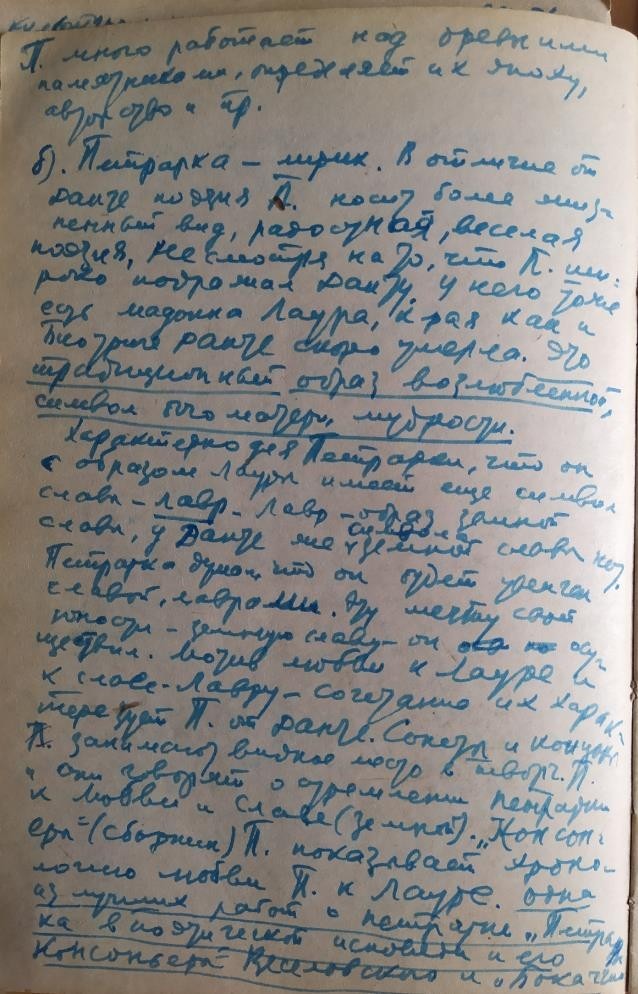 П. много работает над древними
памятниками, определяет их эпоху,
авторство и пр.
б). Петрарка – лирик. В отличие от
Данте поэзия П. носит более жиз-
ненный вид, радостная, веселая
поэзия, несмотря на то, что П. ши-
роко подражал Данту, у него тоже
есть мадонна Лаура, к-рая как и
Беатриче Данте скоро умерла. Это
традиционный образ возлюбленной,
символ богоматери, мудрости.
Характерно для Петрарки, что он
с образом Лауры имеет еще символ
славы – лавр. Лавр – образ земной
славы, у Данте же символа земной славы нет.
Петрарка думал, что он будет увенчан
славой, лаврами. Эту мечту своей
юности – земную славу – он осу-
ществил. Мотив любви к Лауре и
к славе – лавру – сочетание их харак-
теризует П. от Данте. Сонеты и канцоны
П. занимают видное место в творч. П.
и они говорят о стремлении Петрарки
к любви и славе (земной). „Консон-
еры" (сборник) П. показывает хроно-
логию любви П. к Лауре. Одна
из лучших работ о Петрарке „Петрар-
ка в поэтической исповеди и его
Консоньера" Веселовского и „Бокаччо